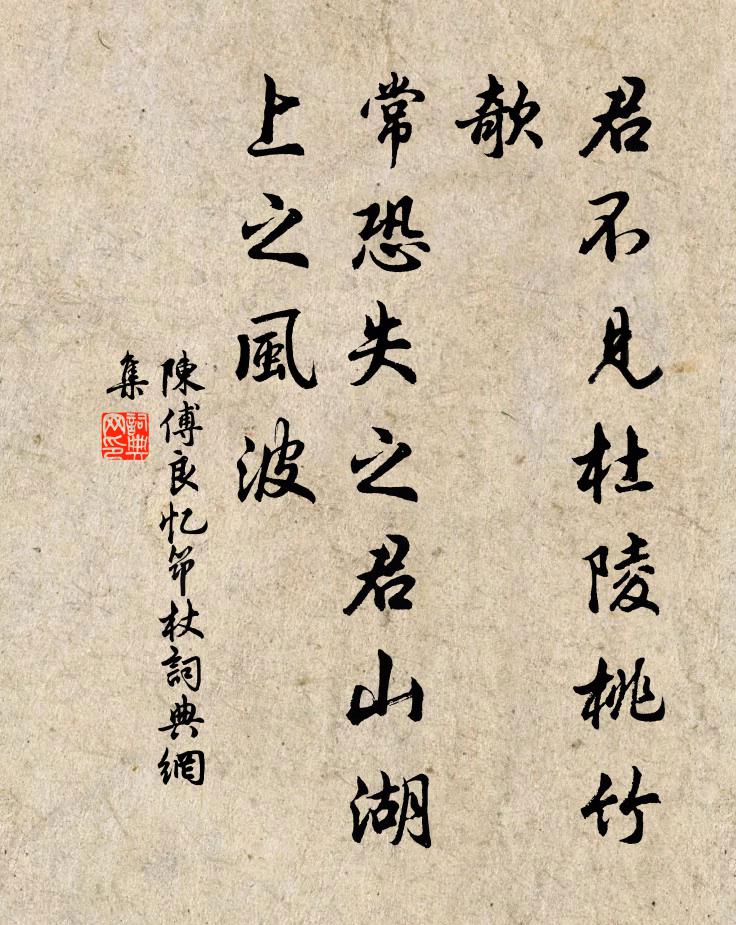 君不見杜陵桃竹
欹
常恐失之君山湖
上之風波
陳傅良忆笻杖詞典網
集
詞典网印